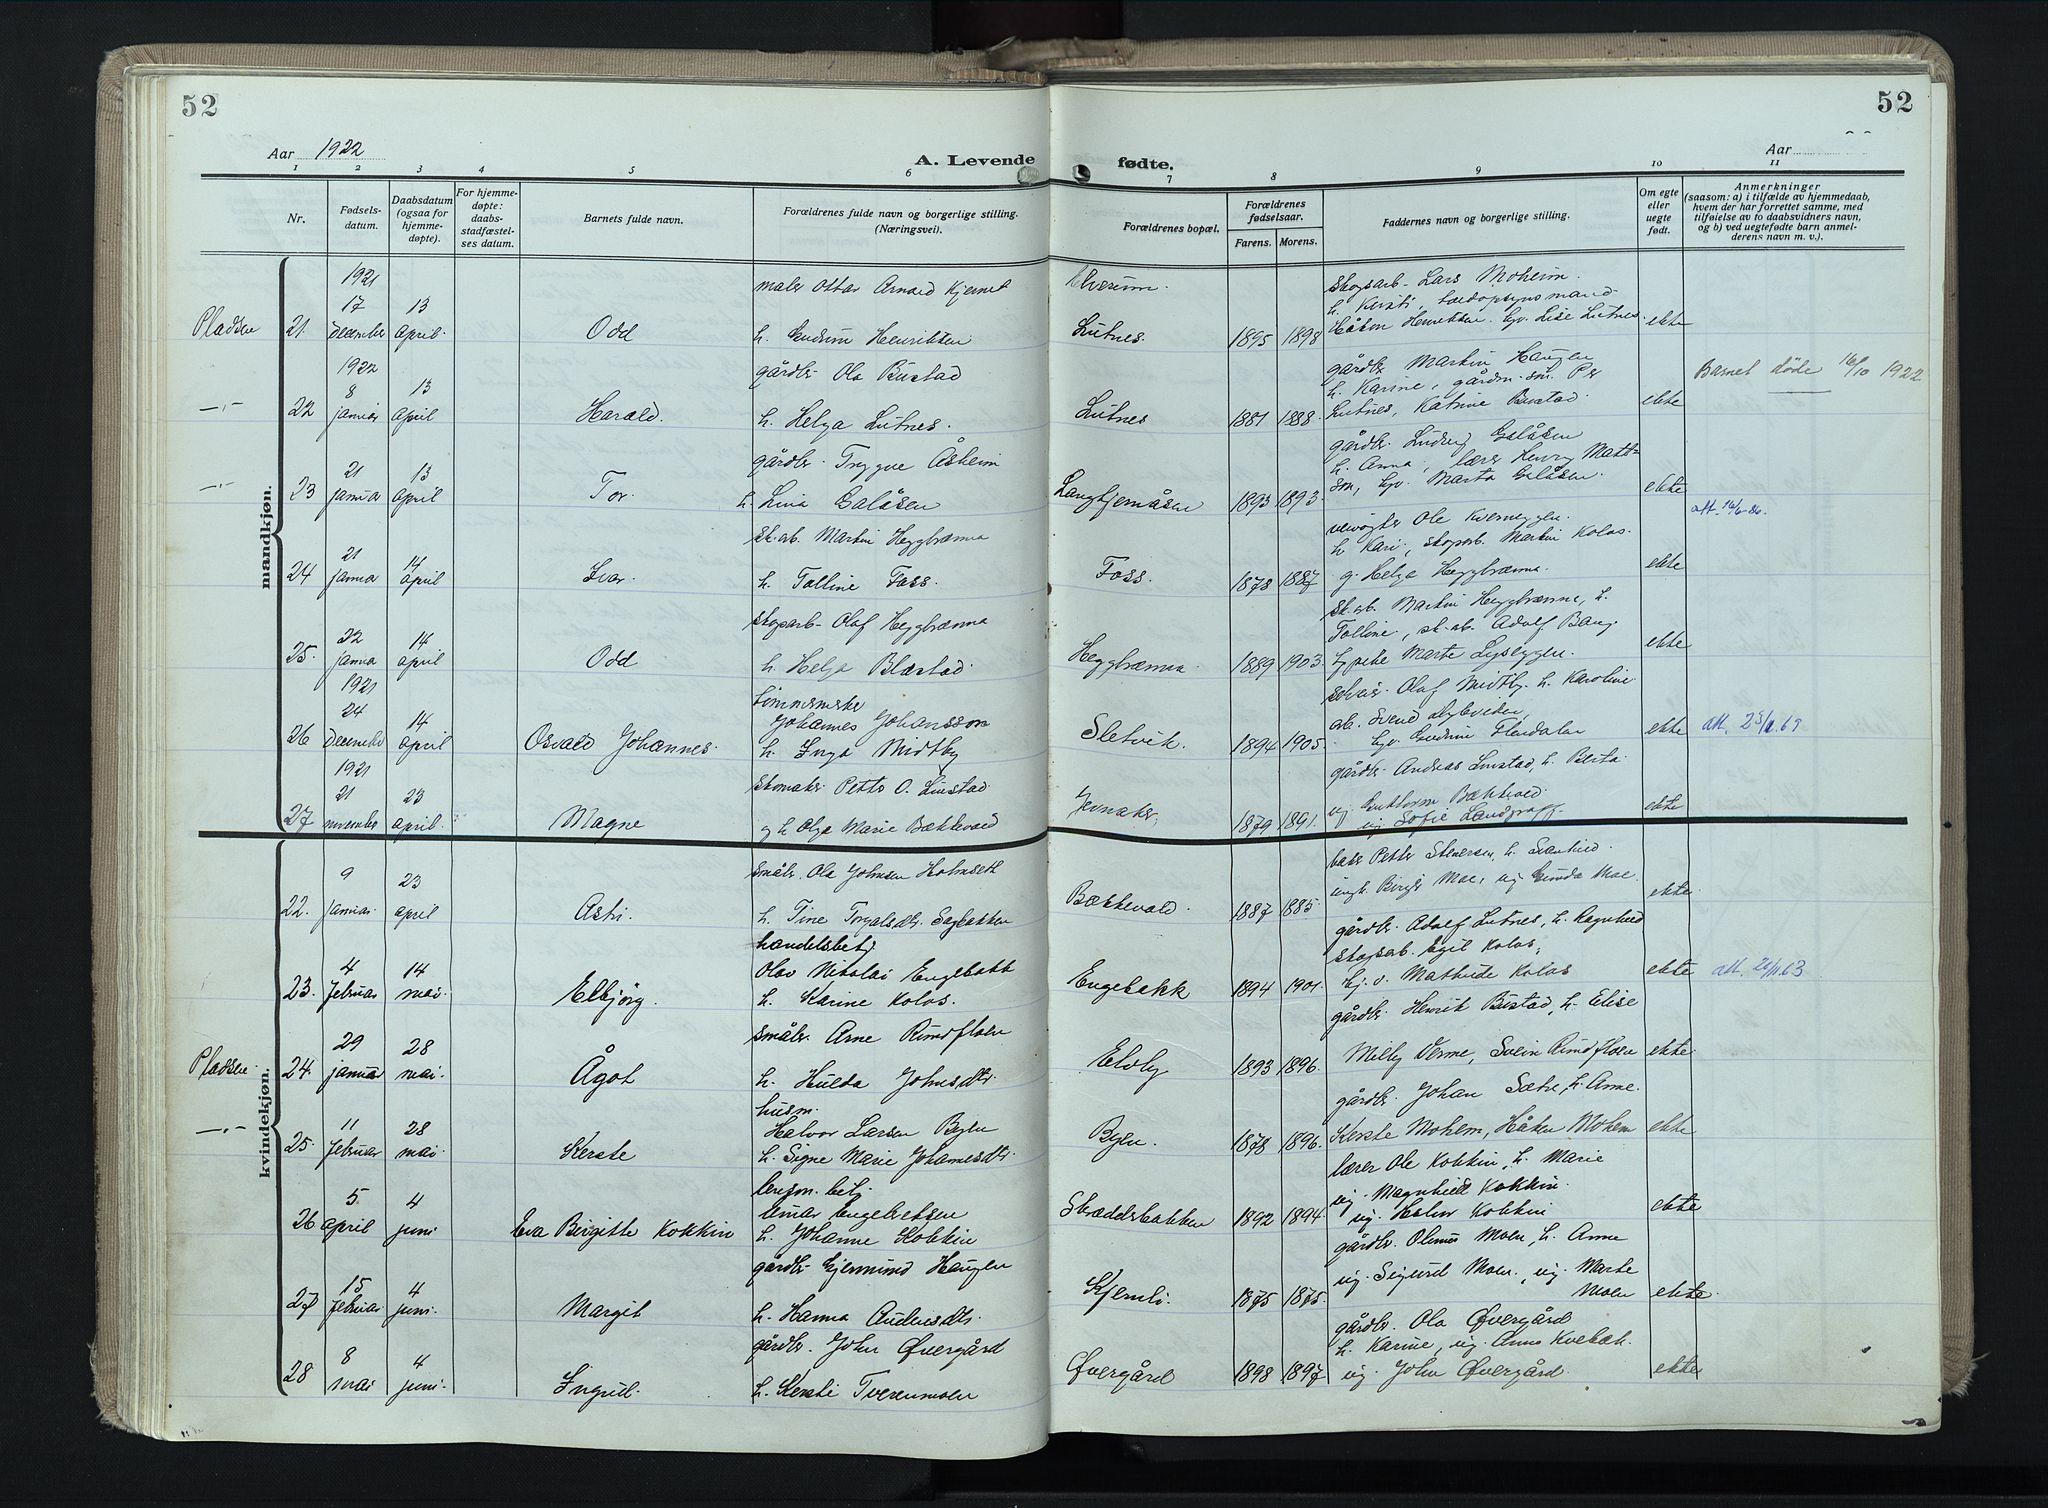 52
52
Aar 1922
A. Levende fødte.
Aar
1 2 3 4 5 6 7 8 9 10 11
Nr.
Fødsels-
datum.
Daabsdatum
(ogsaa for
hjemme-
døpte).
For hjemme-
døpte:
daabs-
stadfæstel-
ses datum.
Barnets fulde navn.
Forældrenes fulde navn og borgerlige stilling.
(Næringsvei).
Forældrenes bopæl.
Forældrenes
fødselsaar.
Farens. Morens.
Faddernes navn og borgerlige stilling.
Om egte
eller
uegte
født.
Anmerkninger
(saasom: a) i tilfælde av hjemmedaab,
hvem der har forrettet samme, med
tilføielse av to daabsvidners navn,
og b) ved uegtefødte barn anmel-
derens navn m. v.).
mandkjøn.
Pladsen 21 1921 17 december 13 april Odd
maler Ottar Arnold Kjernet
h. Gudrun Henriksen
Elverum.
Lutnes. 1895 1898
skogsarb. Lars Moheim.
h. Kersti,
Håkon Henriksen. Gv. Lise Lutnes. ekte
22 1922 8 januar 13 april Harald.
gårdbr. Ola Bustad
h. Helga Lutnes.
Lutnes 1881 1888.
gårdbr. Martin Haugen
h. Karine, gårdm. sm. Per
Lutnes, Katrine Bustad. ekte
Barnet døde 16/10 1922
23 21 januar 13 april Tor.
gårdbr. Trygve Åsheim
h. Lina Galåsen
Langtjernåsen 1893 1893.
gårdbr. Ludvig Galåsen
h. Anna, lærer Henry Matti-
sen, Gv. Marta Galåsen. ekte
att. 16/6-86
24 21 januar 14 april Ivar.
sk.arb. Martin Heggbrenna
h. Tolline Foss.
Foss. 1878 1887
Ole Kverneggen.
h. Kari, skogsarb. Martin Kolos.
g. Helga Heggbrenna. ekte
25. 22 januar 14 april Odd
skogsarb. Olaf Heggbrenna
h. Helga Blæstad.
Heggbrenna 1889 1903.
sk.arb. Martin Heggbrenna, h.
Tolline, sk.arb. Adolf Bang.
Marte Lyseggen. ekte
26 1921 24 December 14 april Osvald Johannes.
tømmermerker
Johannes Johansson
h. Inga Midtby
Sletvik. 1894 1905.
Olaf Midtby. h. Karoline
arb. Svend
Gv. Gudrun Flendalen ekte
att. 23/11.69
27 1921 21 november 23 april. Magne
skomaker Petter O. Linstad
og h. Olga Marie Bækkevold
Jevnaker. 1879 1891.
gårdbr. Andreas Linstad, h. Berta.
uj Guttorm Bækkevold
uj Sofie Landgraff. ekte
kvindekjøn.
22. 9 januar. 23 april Astri.
småbr. Ola Johnsen Holmseth
h. Tine Trygalsdtr. Sagbakken
Bækkevold. 1887 1885.
Petter Stenersen, h.
ungk. Birger Moe, uj Gunda Moe. ekte
23. 4 februar 14 mai. Elbjörg.
handelsbetj.
Olav Nikolai Engebakk
h. Karine Kolos.
Engebakk 1894 1901.
gårdbr. Adolf Lutnes, h. Ragnhild
skogsarb. Egil Kolos,
Gv. Mathilde Kolos ekte
att. 26/11.63
Pladsen. 24. 29 januar 28 mai. Ågot
småbr. Arne Rundfloen
h. Hulda Johnsdtr.
Elvby 1893 1896.
gårdbr. Henrik Bustad, h. Elise
Milly Verme, Svein Rundfloen ekte.
25. 11 februar 28 mai. Kerste
husm.
Halvor Larsen Byen
h. Signe Marie Johannesdtr.
Byen. 1878 1896.
gårdbr. Johan Sætre, h. Anne.
Kerste Mohem, Håken Mohem ekte
26 5. april 4 juni Eva Birgitte Kokkin
betj.
Einar Engebretsen
h. Johanne Kokkin
Skrædderbakken 1892 1894
lærer Ole Kokkin, h. Marie
uj. Magnhild Kokkin.
uj. Halvor Kokkin ekte
27 15 februar 4 juni. Margit
gårdbr. Gjermund Haugen
h. Hanna Audensdtr.
Kjernli. 1875 1875.
gårdbr. Olinus Moen, h. Anne
uj. Sigurd Moen., uj. Marte
Moen ekte.
28 8 mai 4 juni. Ingrid.
gårdbr. John Øvergård
h. Kersti Tverenmoen
Øvergård 1898 1897
gårdbr. Ola Øvergård
h. Karine, uj. Anne Kvebæk.
uj. John Øvergård. ekte